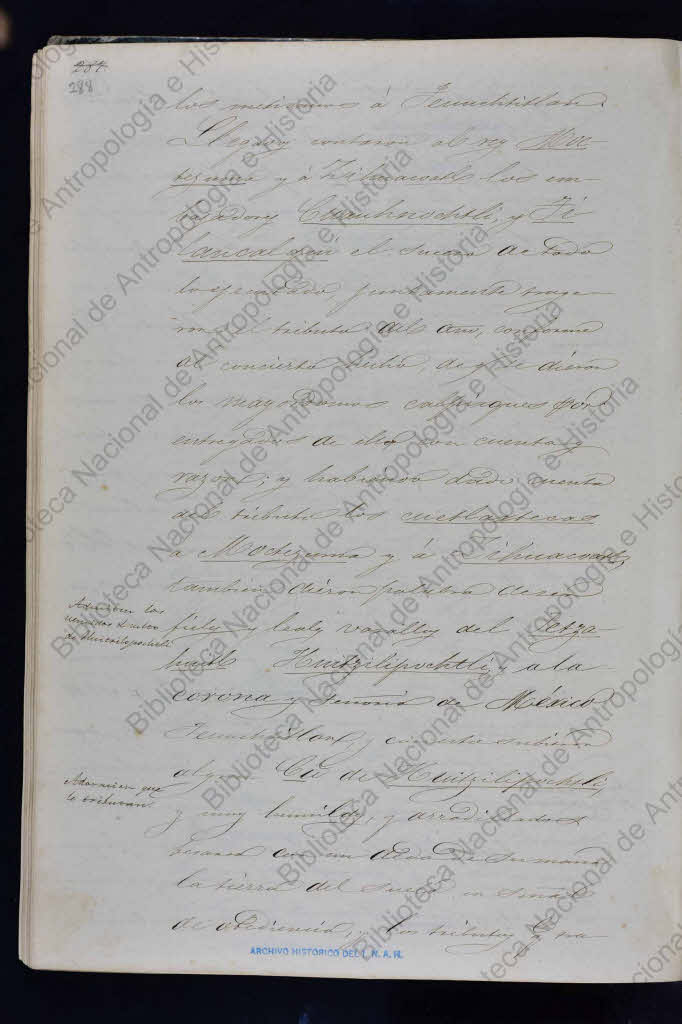 287
288
los mexicanos á Tenuchtitlan.
Llegados contaron al rey Moc-
tezuma y á Zihuacoatl los em-
bajadores Cuauhnochtli, y Ti-
lancalqui el suceso de todo
lo pasado, juntamente traye-
ron el tributo del año, conforme
al concierto hecho, de que se dieron
los mayordomos calpixques por
entregados de ello con cuenta y
razon; y habiendo dado cuenta
del tributo los cuetlaxtecas
a Moctezuma y á Zihuacoatl,
tambien dieron palabra de ser
fieles y leales vasallos del Tetza-
huitl Huitzilipochtli, a la
corona y señorio de México
Tenuchtitlan, y
al gran Cú de Huitzilipochtli,
y muy humildes, y arrodillados
besaron con un dedo de su mano
la tierra del suelo en señal
de obediencia, y los tributos q. na-
Adoraban los
vencidos
de Huitzilipochtli
que
le tributan.
ARCHIVO HISTORICO DEL I. N. A. H.
Biblioteca Nacional de Antropología e Historia